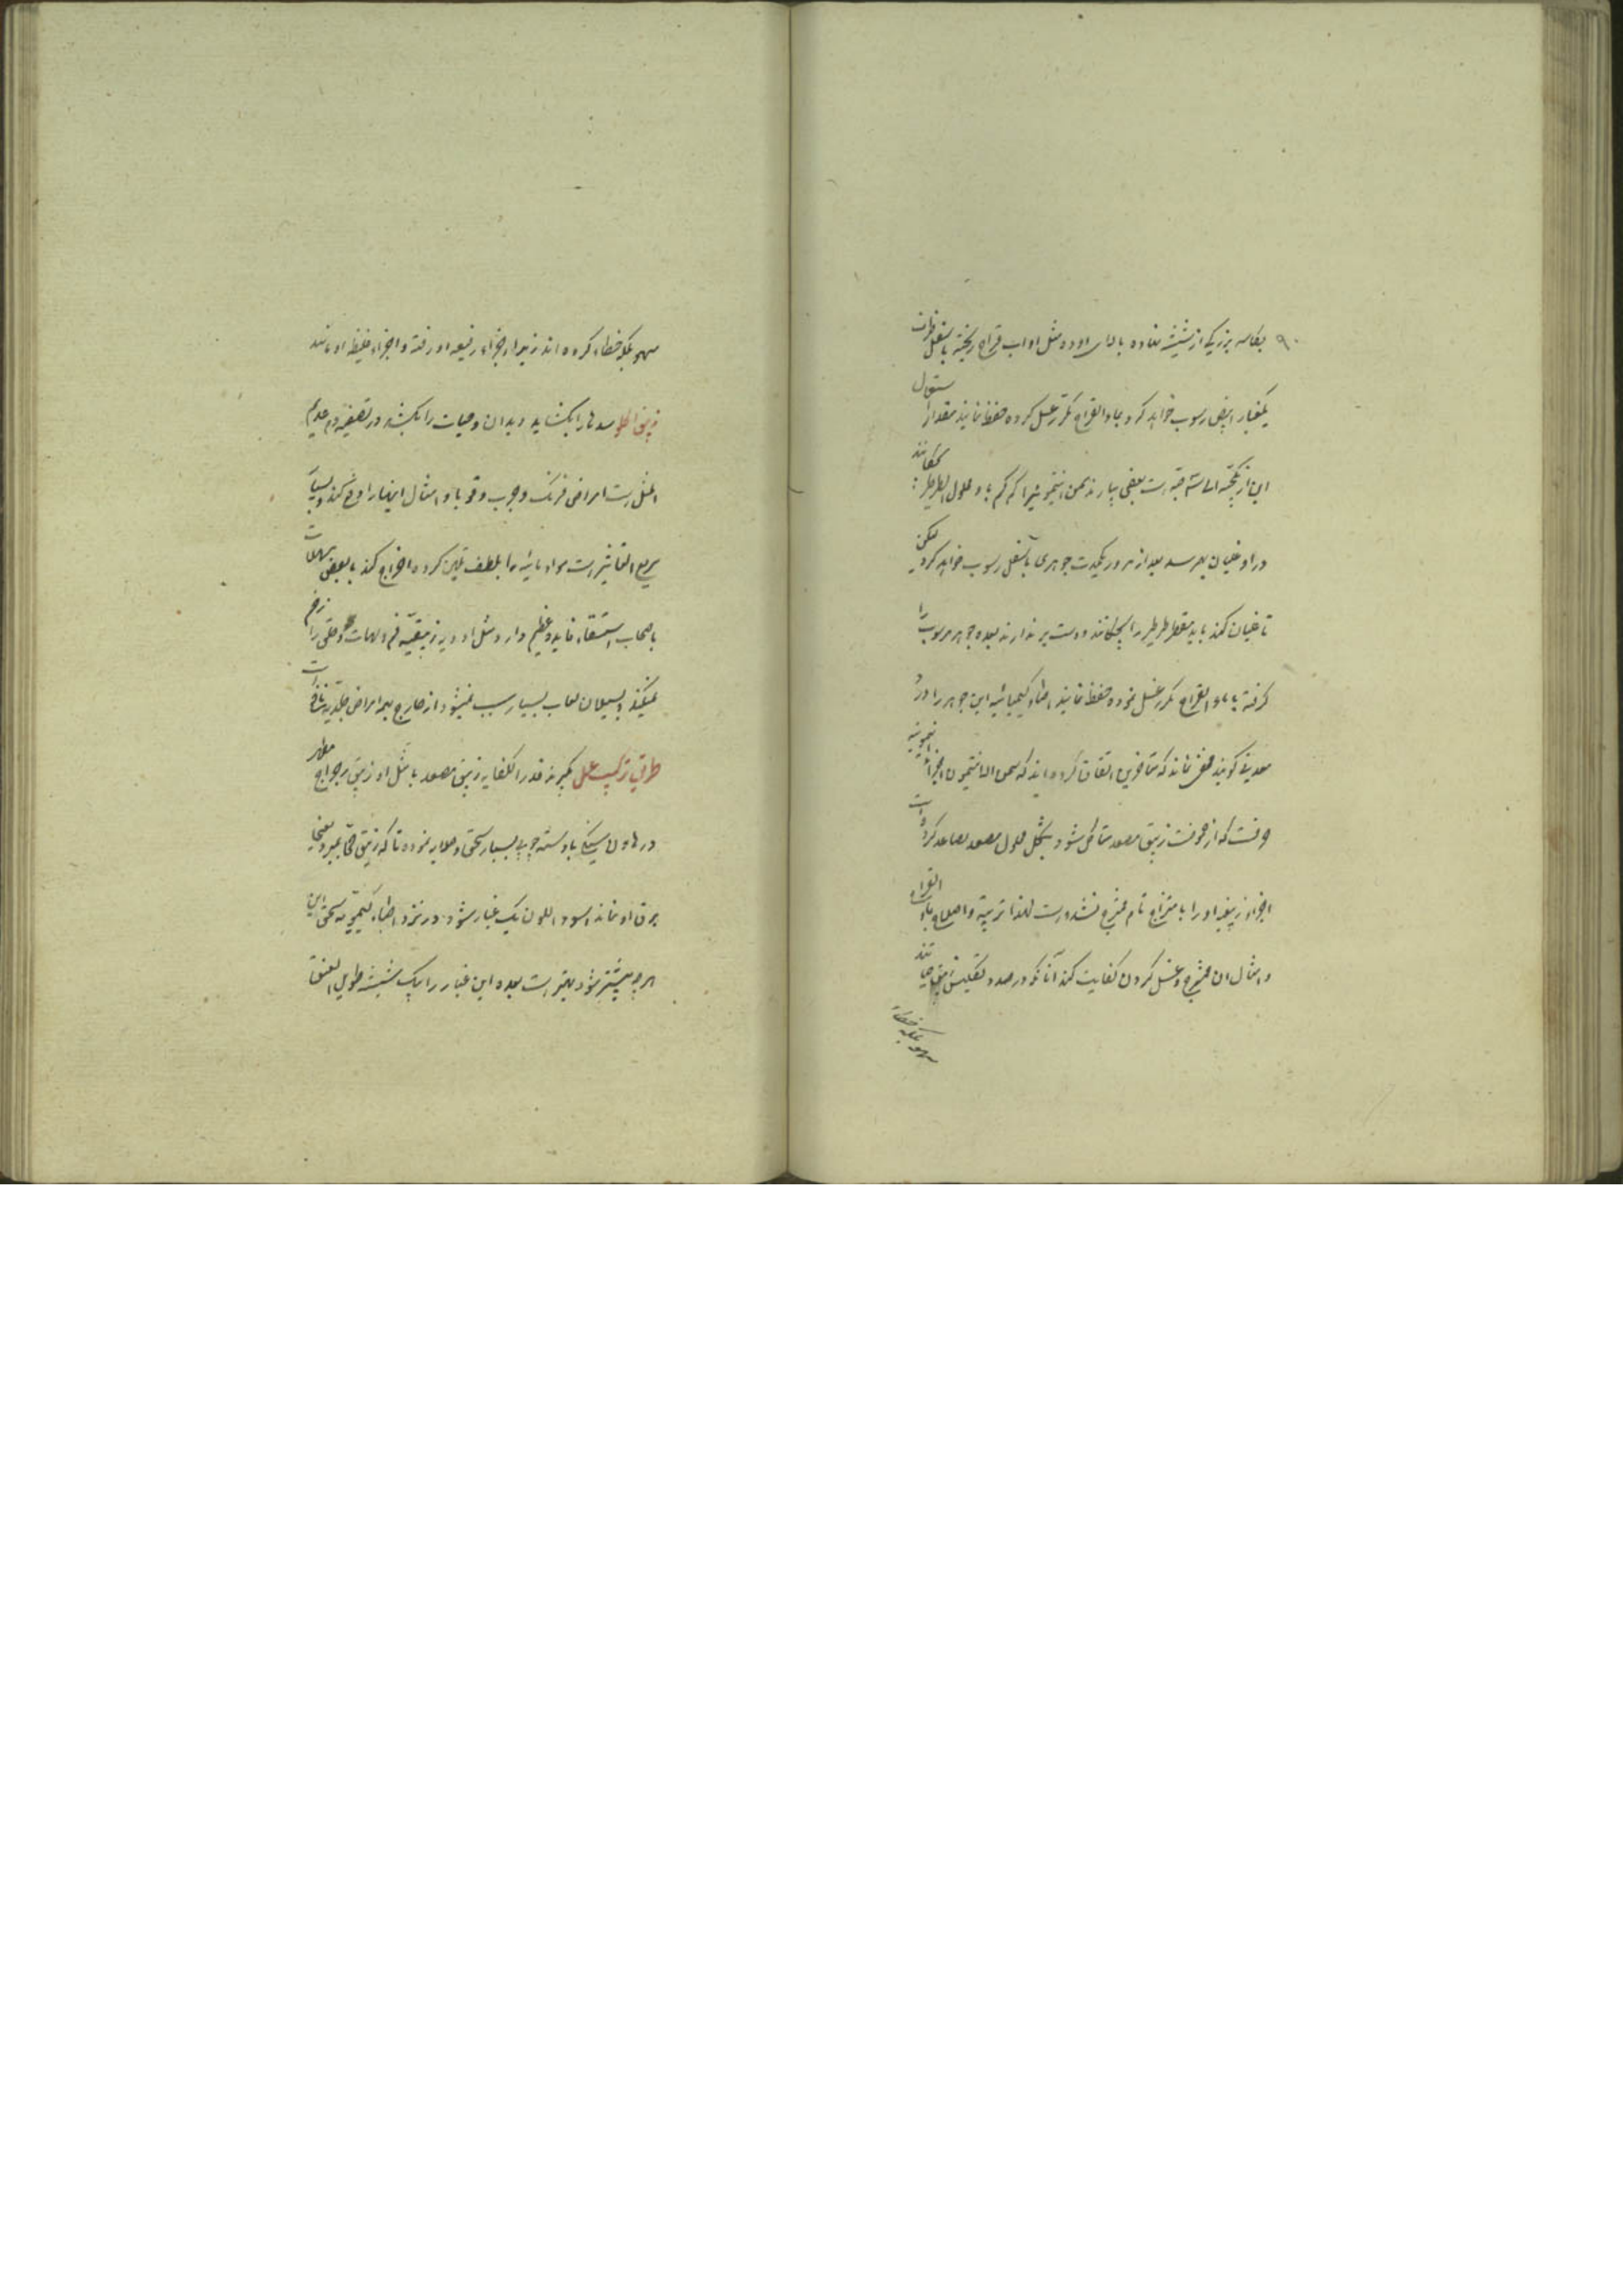 ۹۰
بکاسه بزرگی از شیشه نهاده بالای او ده مثل او اب قراح ریخته باسفل ظرف
یکغبار ابیض رسوب خواهد کرد بماء القراح مکرر غسل کرده حفظ نمایند مقدار استعمال
این از یکحبه الی شش حبه است بعضی بیارند همن انتیمونیرا کم کم با و محلول الطرطیر بچکانند
در او غلیان بهم رسد بعد از مرور یکمدت جوهری باسفل رسوب خواهد کرد لیکن
تا غلیان کند باید مقطر طرطیر را بچکانند و دست برندارند بعده جوهر مرسوب را
گرفته با ماء القراح مکرر غسل نموده حفظ نمایند اطباء کیمیائیه این جوهر را دردر
معدنی گویند مخفی نماند که متاخرین اتفاق کرده اند که سمن الانتیمون اجزاء انتیمونیه
وقت که از عفونت زیبق مصعد متاکل شود بشکل محلول مصعد تصاعد کرده است
اجزاء زیبقیه او را با متزاج تام ممتزج نشده است لهذا تربیه و اصلاح باب القراح
و امثال ان ممتزج و غسل کردن کفایت کند آنانکه در صدد تکلیس زیبق حیاتند
سهو بلکه خطاء
سهو بلکه خطاء کرده اند زیرا اجزاء رفیعه او رفته و اجزاء غلیظه او مانند
سده ها را بگشاید دیدان و حیات را بکشد در تصفیه دم عدیم
المثل است امراض فرنک و جرب و قوبا و امثال اینها را دفع کند و بسیار
سریع التاثیر است مواد مائیه را بلطف تلیین کرده اخراج کند با بعضی مسهلات
باصحاب استسقاء فایده عظیم دارد مثل ادویه زیبقیه فم و لهات و حلق را زخم
نمیکند و بسیلان لعاب بسیار سبب نمیشود از خارج بهمه امراض جلدیه نافع است
طریق ترکیب عمل بگیرند قدر الکفایه زیبق مصعد با مثل او زیبق رجراج مطهر
در هاون سنگی با دسته چوبی بسیار سحق و صلایه نموده تا که زیبق حی بمیرد یعنی
برق او نماند اسود اللون یک غبار شود در نزد اطباء کیمیویه سحق این
هر چه بیشتر شود بهتر است بعده این غبار را بیک شیشه طویل العنق